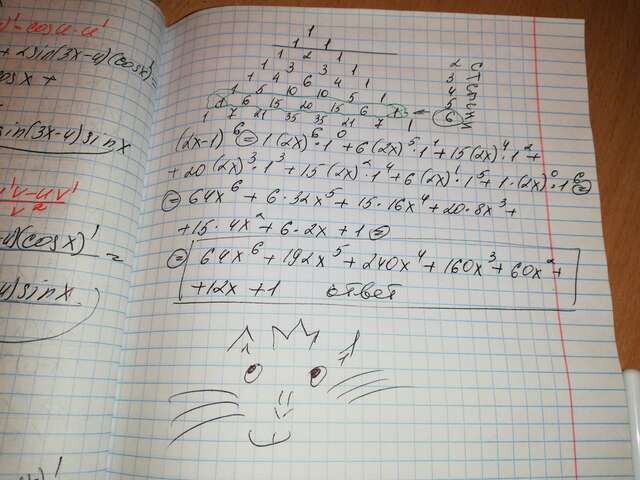 )'=cosu·u'
+ 2sin(3x-4)(cosx)'=
cosx +
sin(3x-4)sinx
u'v-uv'
v²
)(cosx)' =
4)sinx
1
1 1
1 2 1
1 3 3 1
1 4 6 4 1
1 5 10 10 5 1
1 6 15 20 15 6 1
1 7 21 35 35 21 7 1
2 С
3 Т
4 Е
5 П
6
(2x-1)⁶ = 1(2x)⁶·1⁰+6(2x)⁵·1¹+15(2x)⁴·1²+
+20(2x)³·1³+15(2x)²·1⁴+6(2x)¹·1⁵+1·(2x)⁰·1⁶=
=64x⁶ + 6·32x⁵ + 15·16x⁴+20·8x³+
+15·4x²+6·2x+1=
= 64x⁶+192x⁵+240x⁴+160x³+60x²+
+12x+1 ответ